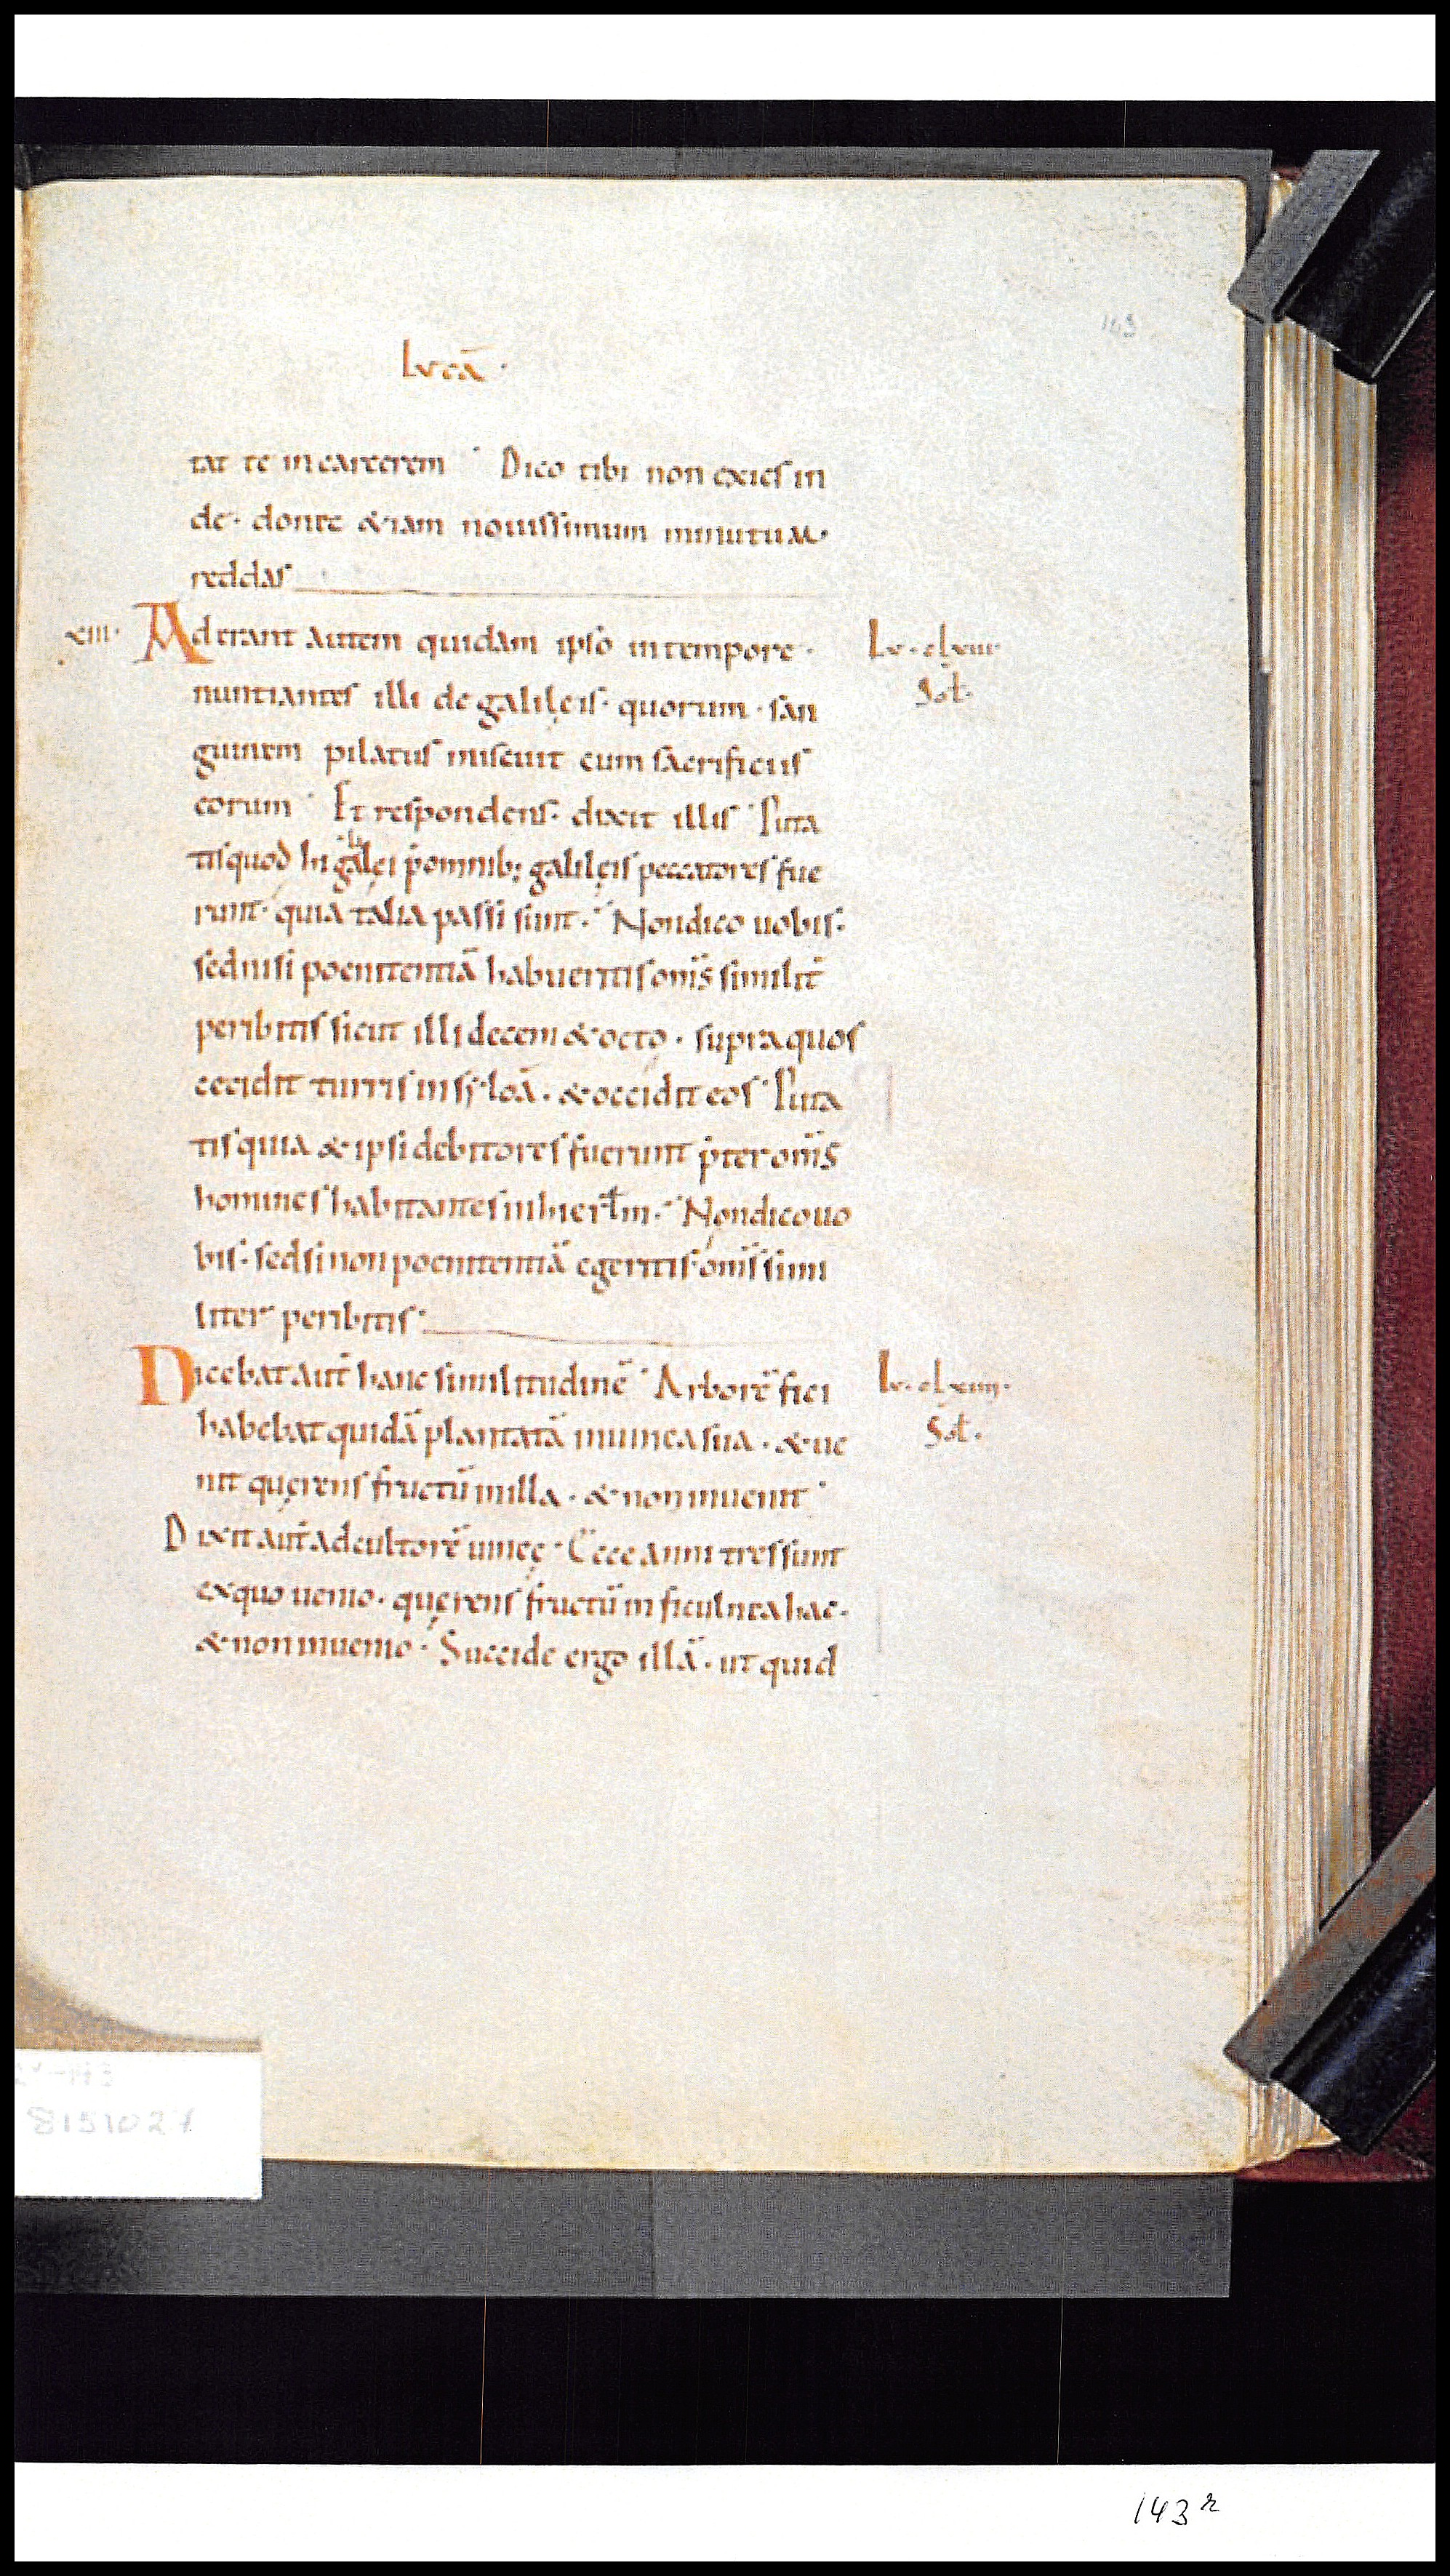 143
Lucā ·
tat te incarcerem · Dico tibi non exies in
de · donec &iam nouissimum minutum ·
reddas
xiii · Aderant autem quidam ipso intempore · Lv · clxiii
nuntiantes illi de galilęis · quorum · san Sol ·
guinem pilatus miscuit cum sacrificiis
eorum · Et respondens · dixit illis · Puta
tisquod hi galilęi p̄omnib; galilęis peccatores fue
runt · quia talia passi sunt · Nondico uobis ·
sednisi poenitentiā habueritis om̄s similit̄
peribitis sicut illi decem & octo · supraquos
cecidit turris insyloā · & occidit eos · Puta
tisquia & ipsi debitores fuerunt p̄ter om̄s
homines habitantes inhierłm · Nondico uo
bis · sed sinon poenitentiā egeritis · om̄s simi
liter peribitis ·
Dicebat aut̄ hanc similitudinē · Arborē fici Lv · clxiiii ·
habebat quidā plantatā inuinea sua · & ue Sol ·
nit quęrens fructū inilla · & noninuenit ·
Dixit aut̄ adcultorē uineę · Ecce anni tres sunt
exquo uenio · quęrens fructū in ficulnea hac ·
& noninuenio · Succide ergo illā · ut quid
8151027
143r